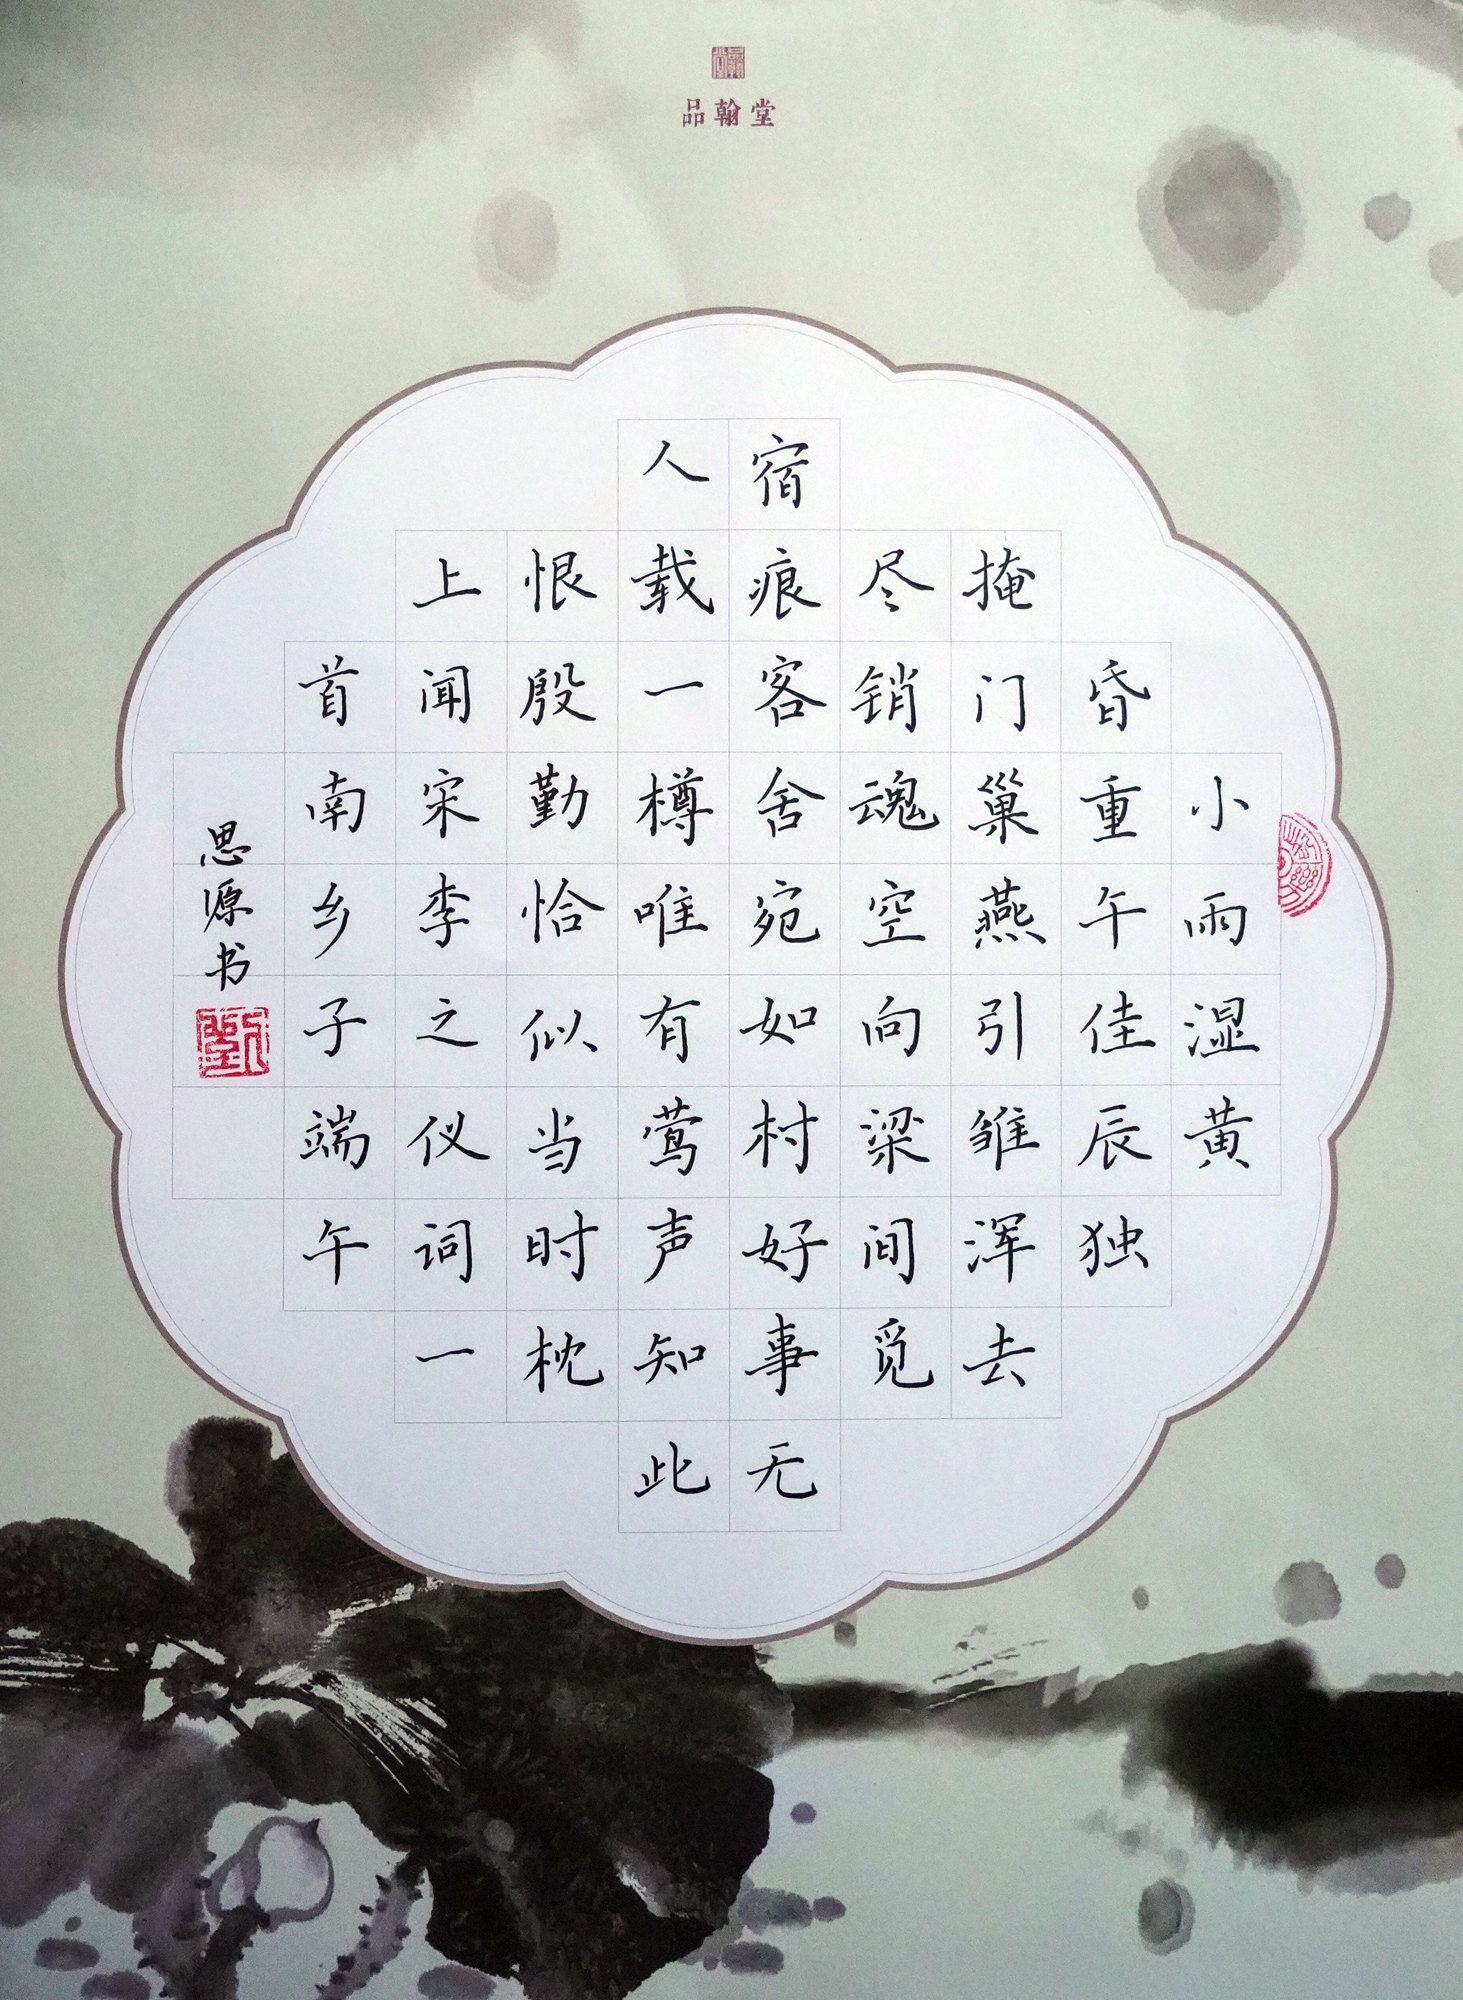 品翰堂
小雨湿黄
昏重午佳辰独
掩门巢燕引雏浑去
尽销魂空向梁间觅
宿痕客舍宛如村好事无
人载一樽唯有莺声知此
恨殷勤恰似当时枕
上闻宋李之仪词一
首南乡子端午
思源书